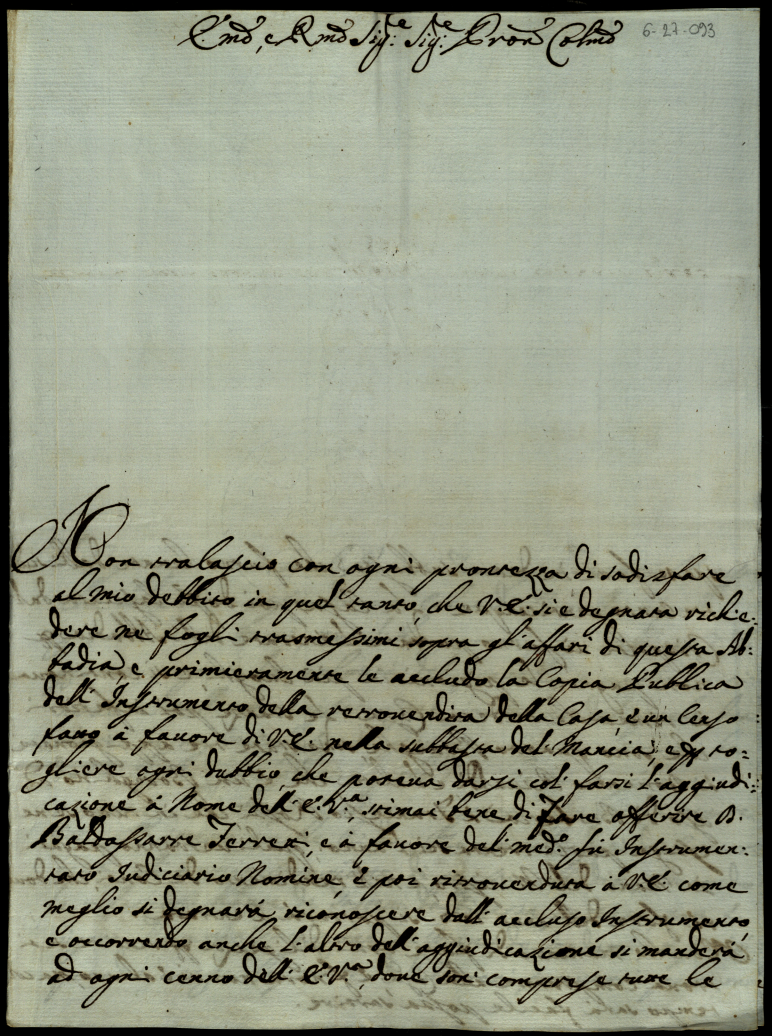 E.mo, e R.mo Sig.re Sig.re Pron Colmo
6-27-093
Non tralascio con ogni prontezza di sodisfare
al mio debbito in quel tanto, che V.E. si è degnata richie-
dere ne fogli trasmessimi sopra gl'affari di questa Ab-
badia, e primieramente le accludo la Copia Publica
dell'Instrumento della retrovendita della Casa, è un Censo
fatto à favore di V.E. nella subbasta del Mancia, e p to-
gliere ogni dubbio, che poteva darsi col farsi l'aggiudi-
cazione à Nome dell'E.V.a, stimai bene di fare offerire D.
Baldassarre Terreni, e à favore del med.o fù Instrumen-
tato Iudiciario Nomine, è poi retrovenduta à V.E. come
meglio si degnarà riconoscere dall'accluso Instrumento,
e occorrendo anche l'altro dell'aggiudicazione si manderà
ad ogni cenno dell'E.V.a, dove son comprese tutte le